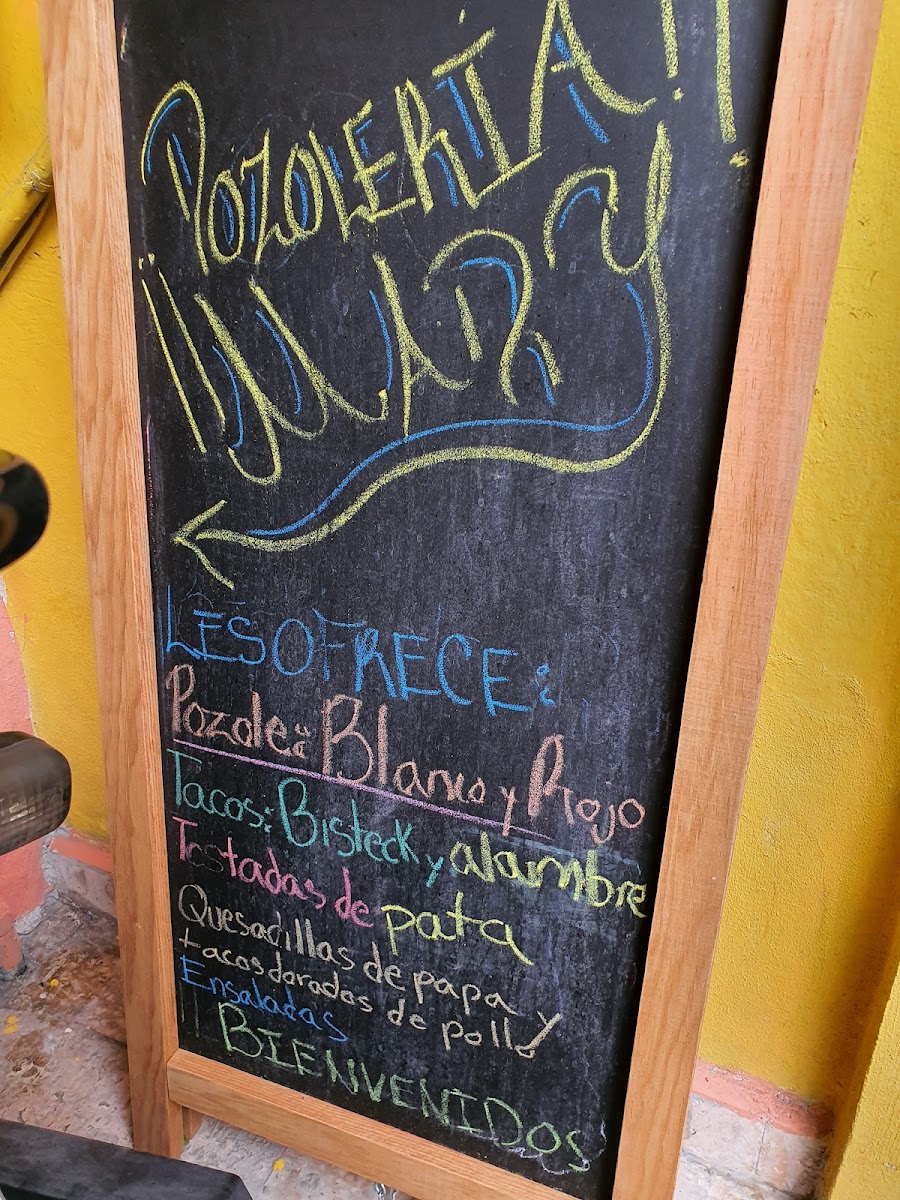 POZOLERIA
¡¡MARY!!
LES OFRECE:
Pozole: Blanco y Rojo
Tacos: Bisteck y alambre
Tostadas de pata
Quesadillas de papa y
tacos dorados de pollo
Ensaladas
BIENVENIDOS